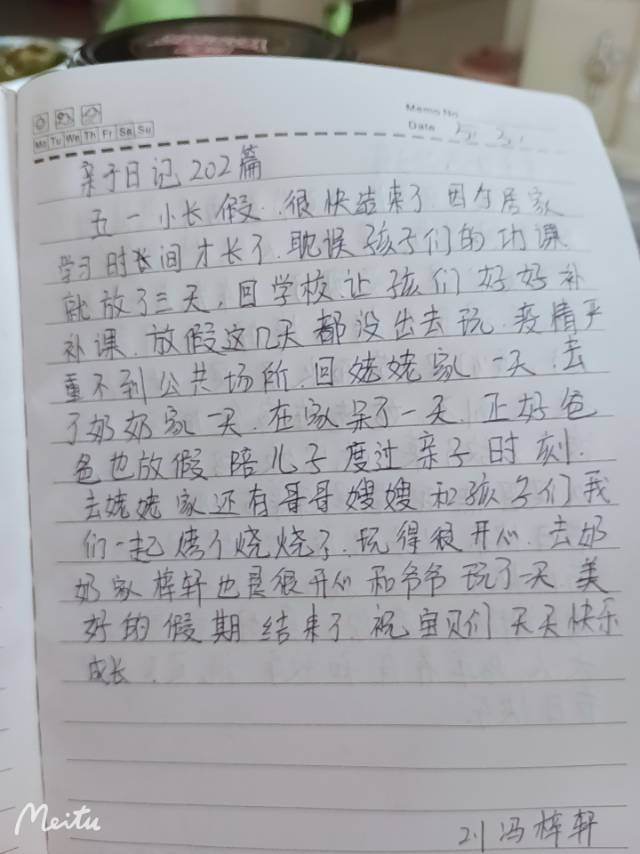 Memo No.
Mo Tu We Th Fr Sa Su
Date 5.5.
亲子日记202篇
五一小长假.很快结束了.因为居家
学习时长间才长了.耽误孩子们的功课
就放了三天.回学校.让孩们好好补
补课.放假这几天都没出去玩.疫情严
重不到公共场所.回姥姥家一天.去
了奶奶家一天.在家呆了一天.正好爸
爸也放假.陪儿子度过亲子时刻.
去姥姥家还有哥哥嫂嫂和孩子们我
们一起烤个烧烧了.玩得很开心.去奶
奶家梓轩也是很开心和爷爷玩了一天.美
好的假期结束了.祝宝贝们天天快乐
成长.
21冯梓轩
Meitu